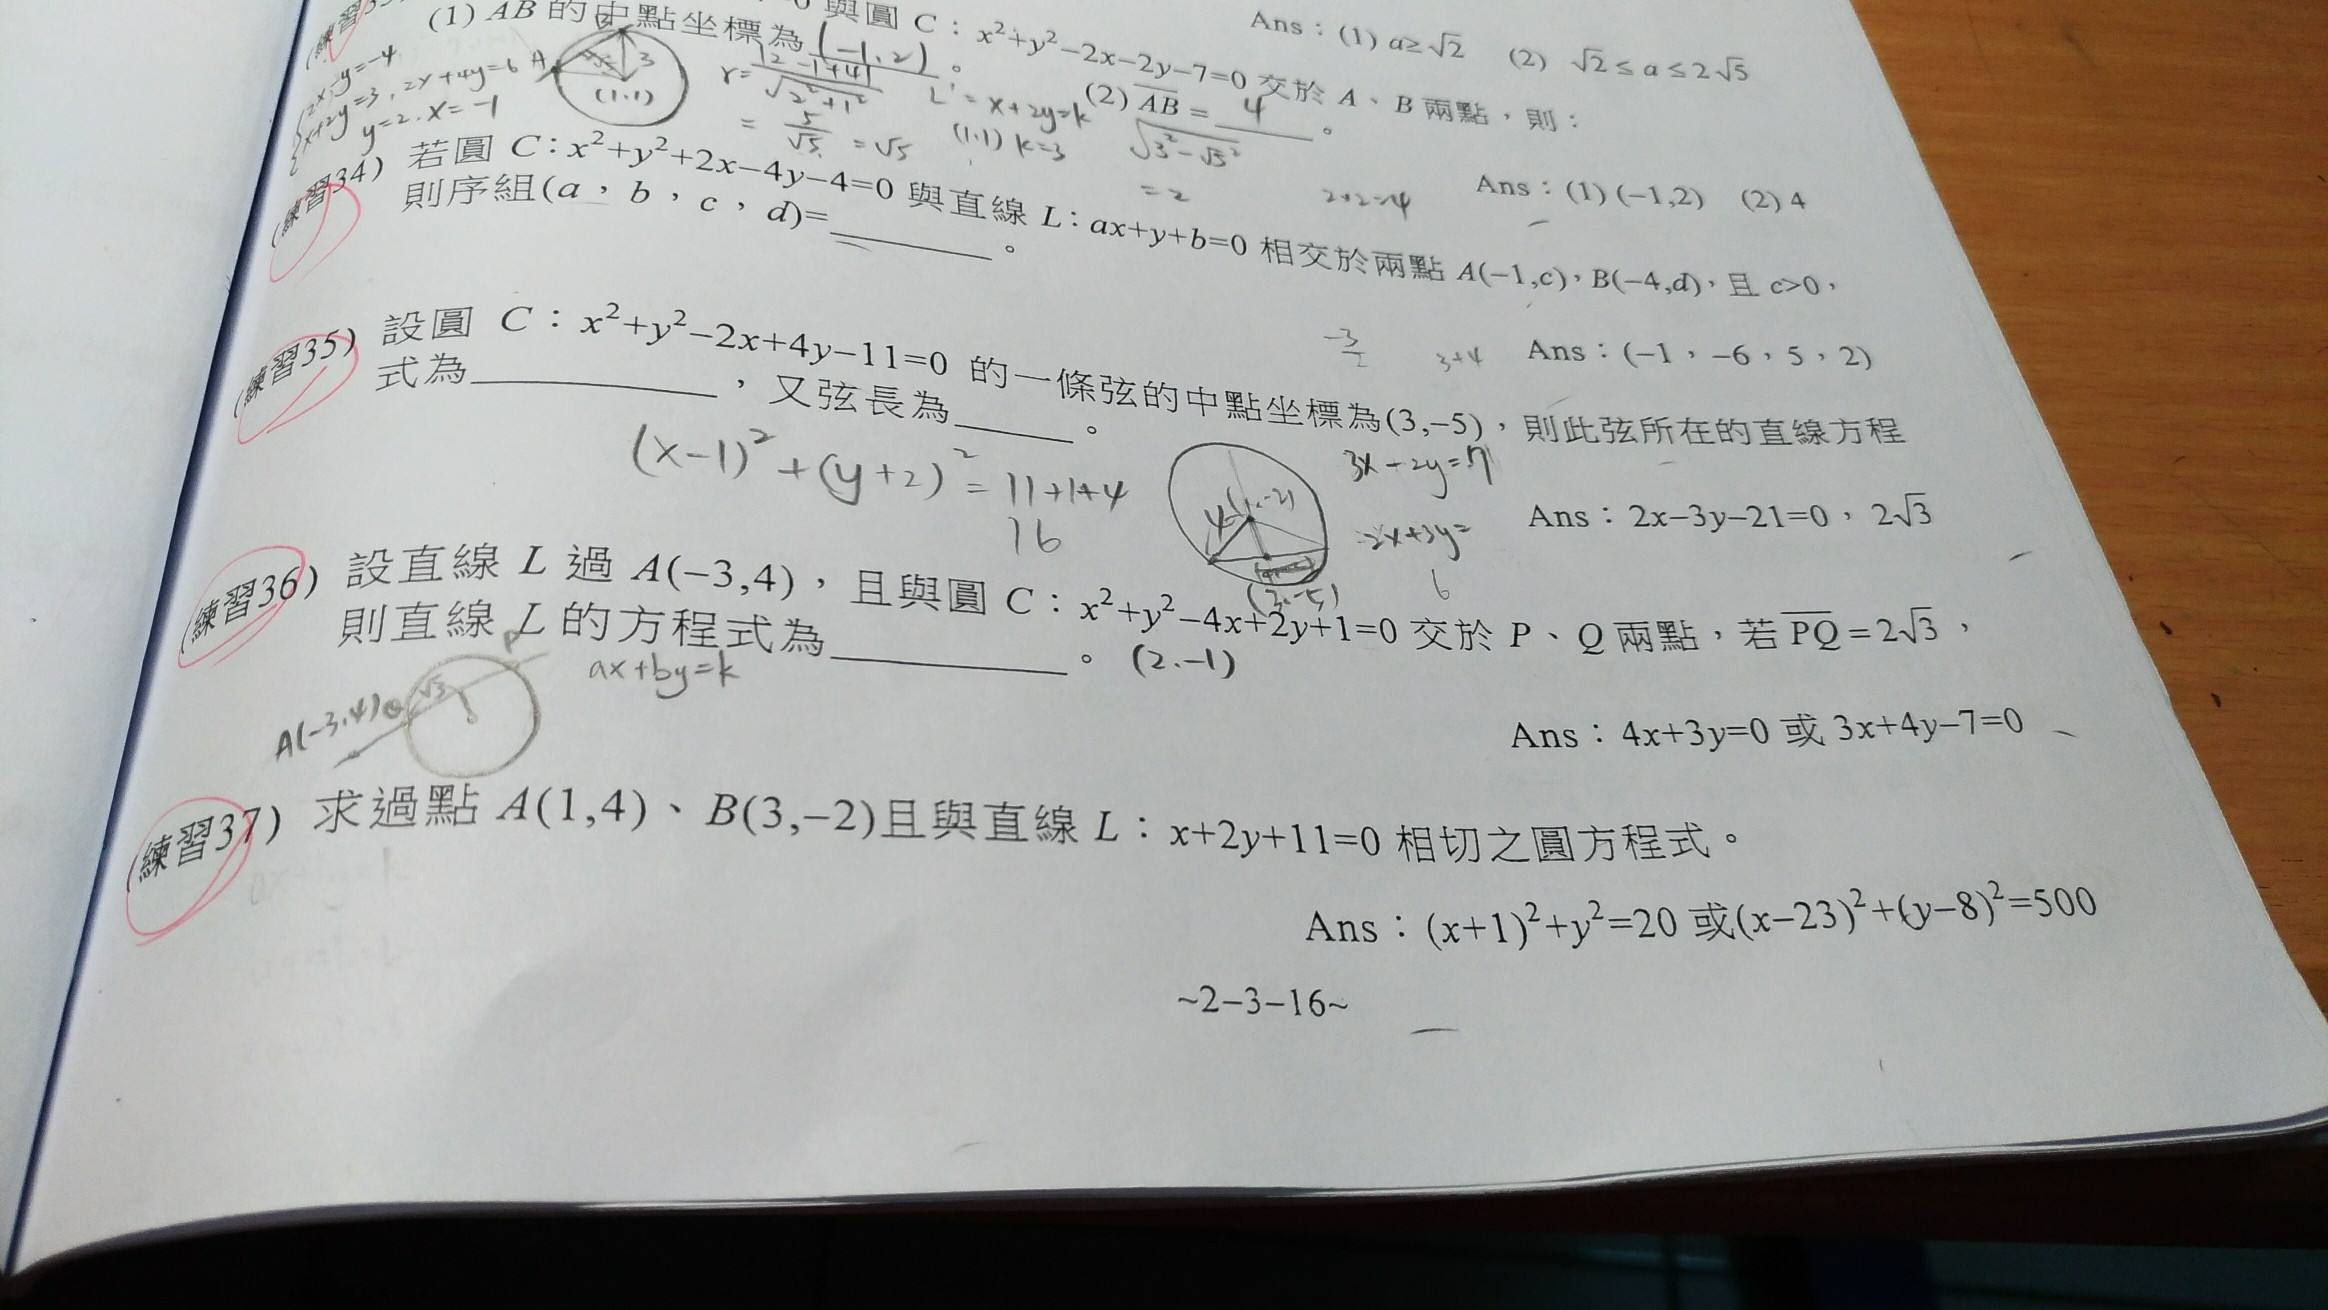 0 與圓 C：x²+y²−2x−2y−7=0 交於 A、B 兩點，則：
Ans：(1) a≥√2 (2) √2≤a≤2√5
(1) AB 的中點坐標為 (-1,2) 。 (2) AB = 4 。
2x-y=-4
x+2y=3, 2x+4y=6
y=2. x=-1
A
3
(1.1)
r=|2-1+4|/√2²+1²
= 5/√5 = √5
L'= x+2y=k
(1.1) k=3
√3²-√5²
=2
2+2=4
Ans：(1) (−1,2) (2) 4
(練習34) 若圓 C：x²+y²+2x−4y−4=0 與直線 L：ax+y+b=0 相交於兩點 A(−1,c)，B(−4,d)，且 c>0，
則序組(a，b，c，d)=________。
3+4
Ans：(−1，−6，5，2)
(練習35) 設圓 C：x²+y²−2x+4y−11=0 的一條弦的中點坐標為(3,−5)，則此弦所在的直線方程
式為____________，又弦長為______。
(x-1)²+(y+2)²=11+1+4
16
4
(3.-5)
6
Ans：2x−3y−21=0，2√3
(練習36) 設直線 L 過 A(−3,4)，且與圓 C：x²+y²−4x+2y+1=0 交於 P、Q 兩點，若 PQ=2√3，
則直線 L 的方程式為____________。 (2.-1)
ax+by=k
A(-3.4)
P
√3
Ans：4x+3y=0 或 3x+4y−7=0
(練習37) 求過點 A(1,4)、B(3,−2)且與直線 L：x+2y+11=0 相切之圓方程式。
Ans：(x+1)²+y²=20 或(x−23)²+(y−8)²=500
~2−3−16~